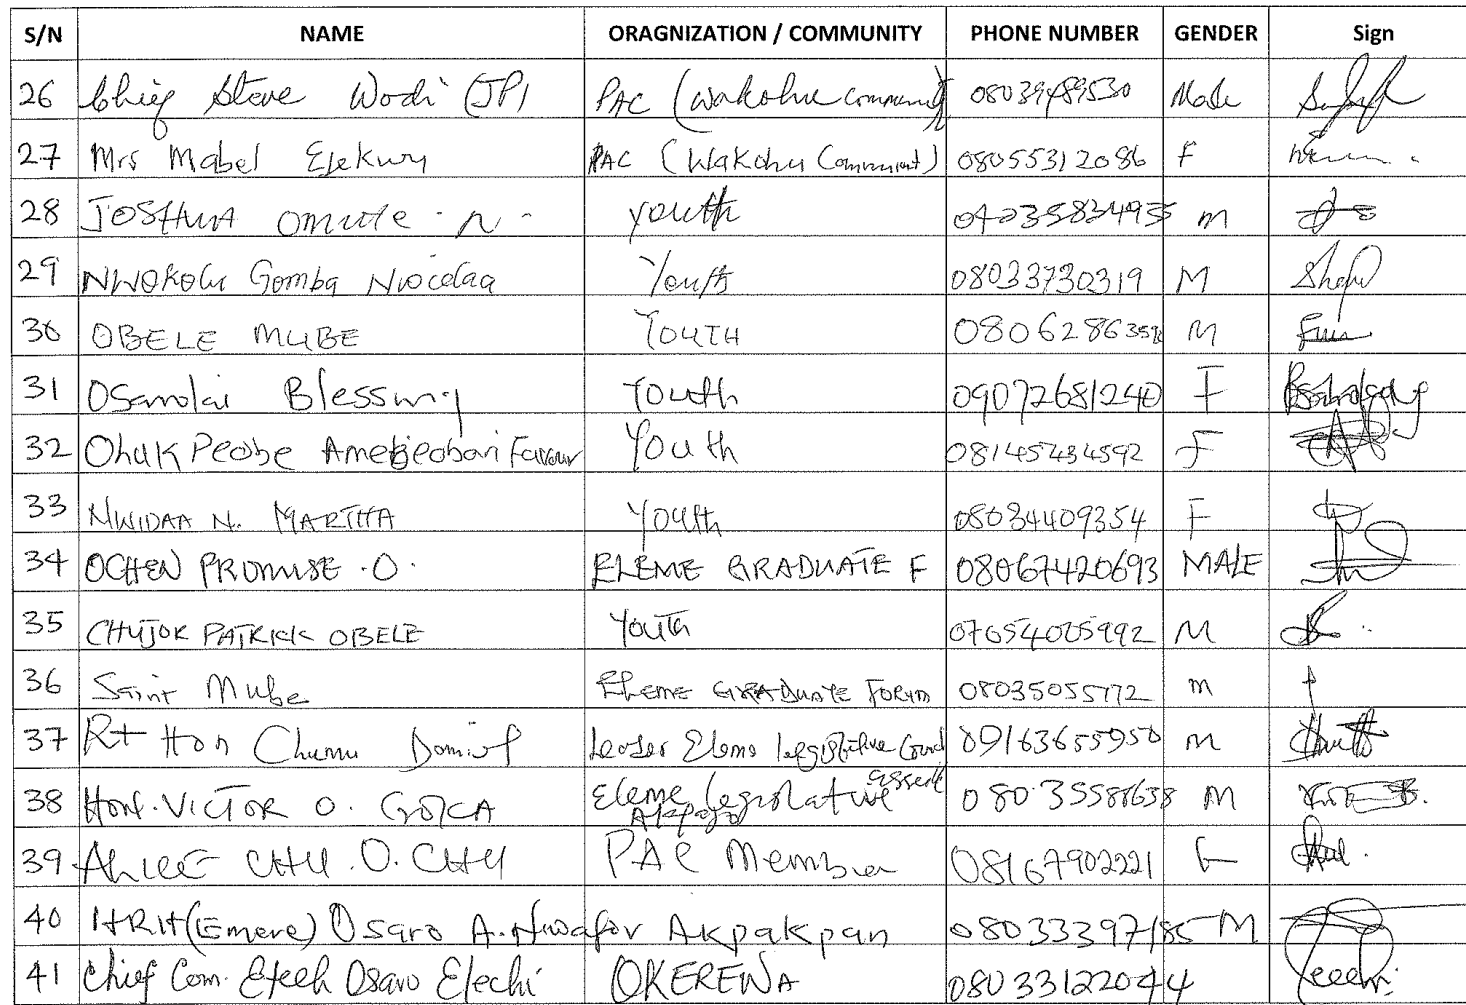 S/N NAME ORAGNIZATION / COMMUNITY PHONE NUMBER GENDER Sign
26 Chief Steve Wodi (JP) PAC (Wakohu Community) 08039489530 Male
27 Mrs Mabel Ejekwu PAC (Wakohu Community) 08055312086 F
28 JOSHUA OMUTE . N . youth 07035834935 m
29 NWOKOLU Gomba Nwidaa Youth 08033730319 M
30 OBELE MUBE YOUTH M
31 Osarolai Blessing Youth 09072681240 F
32 Youth 08145434592 F
33 NWIDAA N. MARTHA Youth 08034409354 F
34 OCHEN PROMISE .O. ELEME GRADUATE F 08067420693 MALE
35 CHUJOR PATRICK OBELE Youth 07054005992 M
36 Saint Mube ELEME GRADUATE FORUM 08035055772 m
37 Rt Hon Chumu Leader Eleme legislative m
38 HON. VICTOR O. Eleme legislative M
39 CHU .O. CHU PAC Member 08167902221 F
40 HRH (Emere) Osaro A. Nwafor Akpakpan 08033397185 M
41 Chief Com. Eteeh Osaro Elechi OKEREWA 08033122044